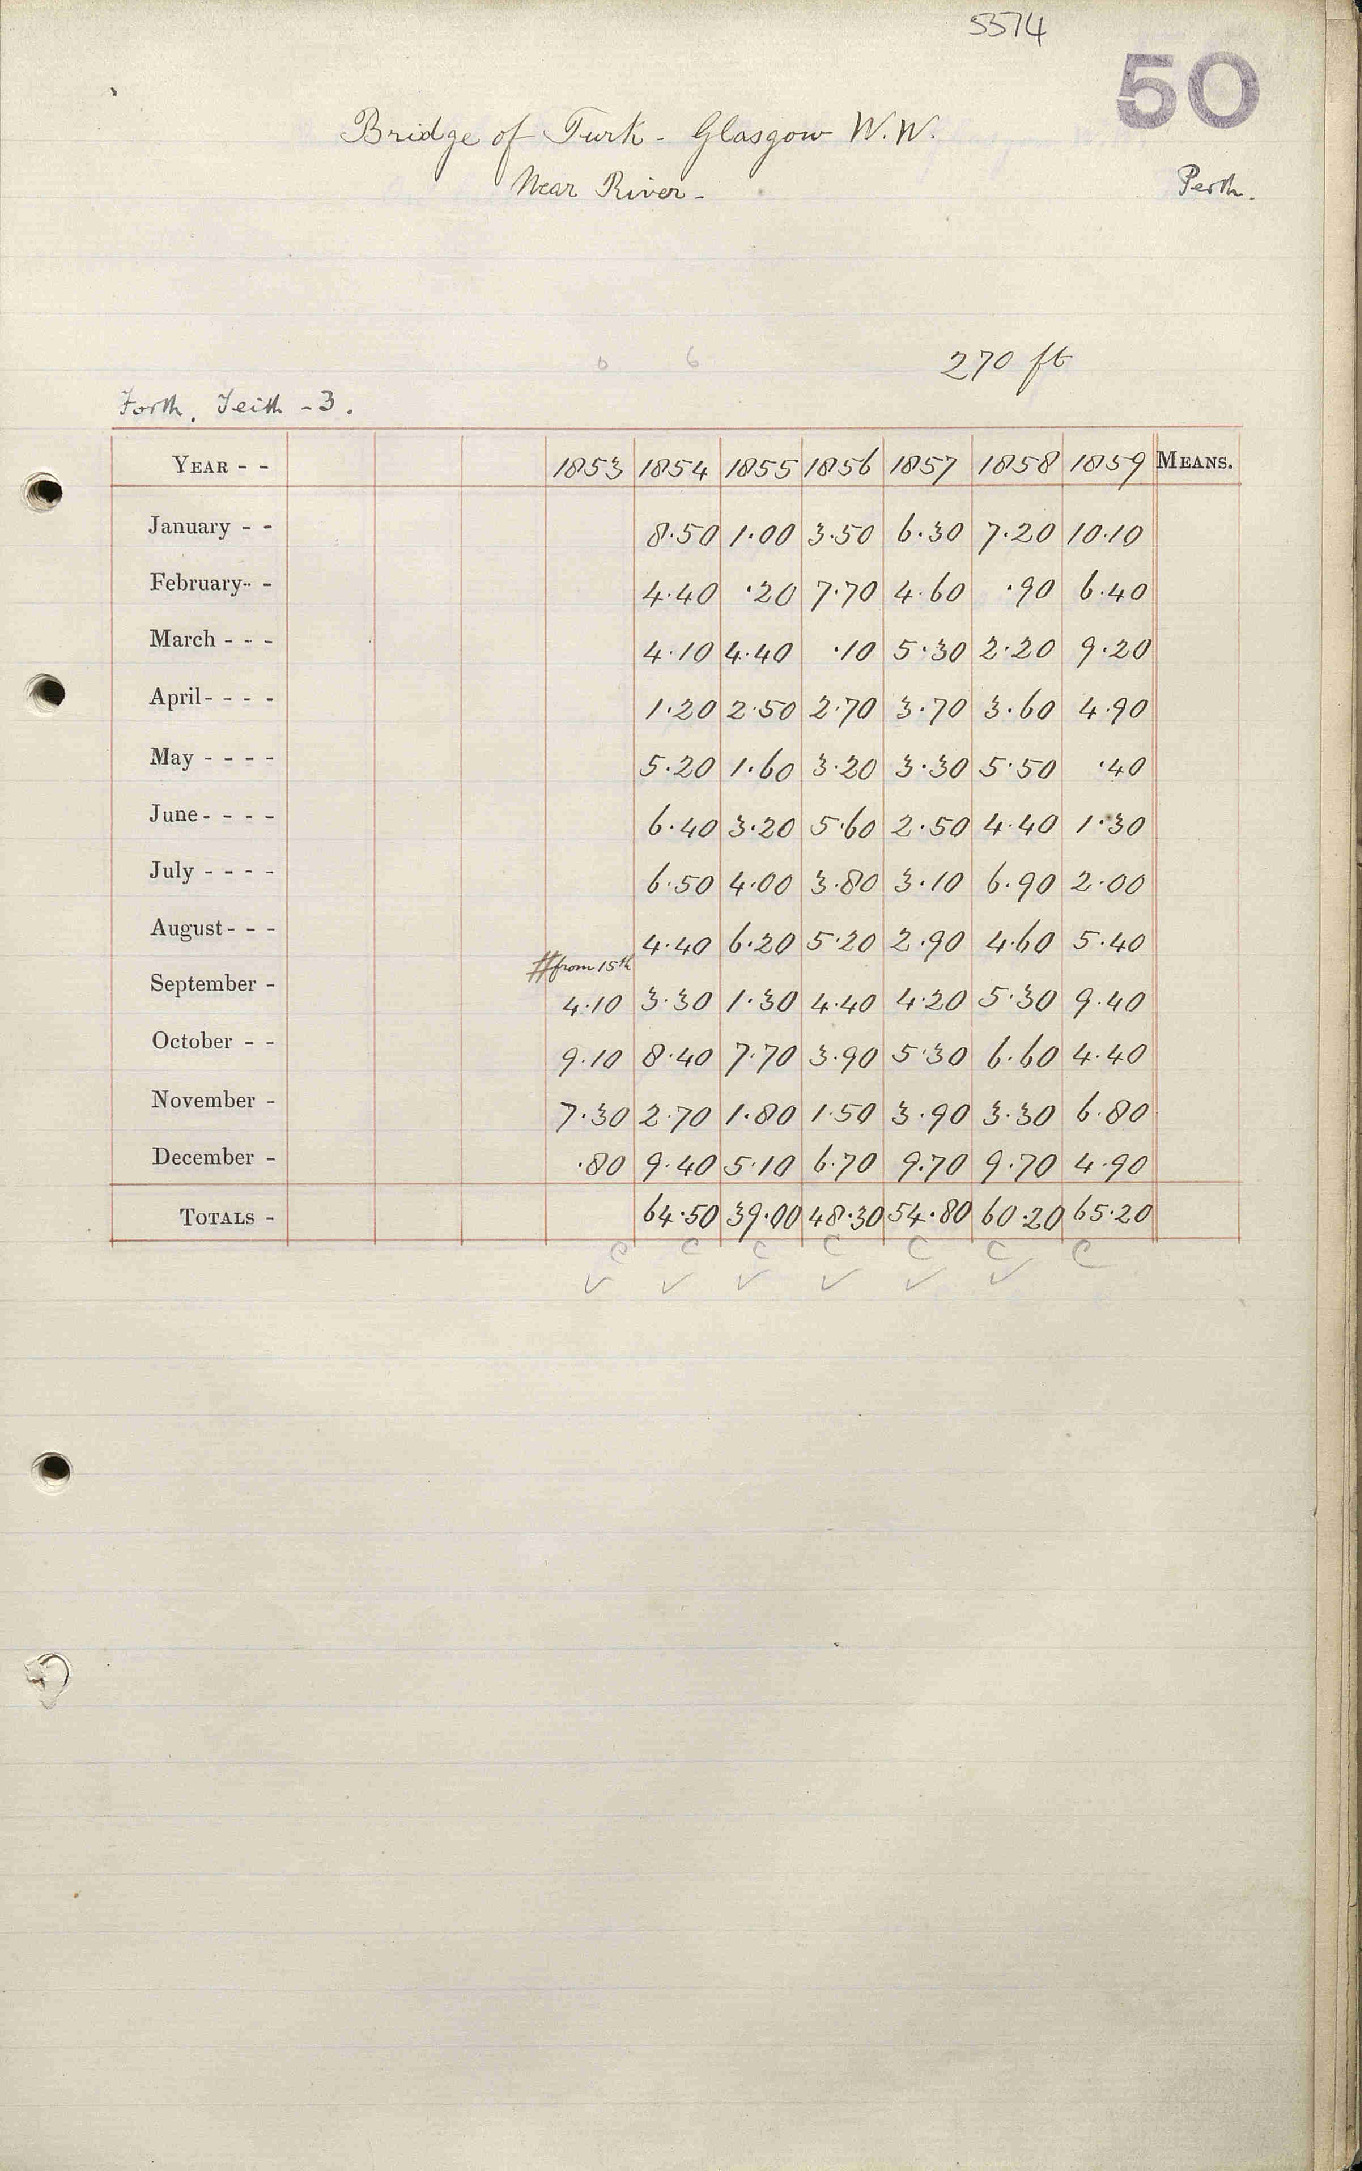 5574
50
Bridge of Turk - Glasgow W.W.
Near River -
Perth.
270 ft
Forth, Teith - 3.
YEAR - - 1853 1854 1855 1856 1857 1858 1859 MEANS.
January - - 8.50 1.00 3.50 6.30 7.20 10.10
February - - 4.40 .20 7.70 4.60 .90 6.40
March - - - 4.10 4.40 .10 5.30 2.20 9.20
April - - - - 1.20 2.50 2.70 3.70 3.60 4.90
May - - - - 5.20 1.60 3.20 3.30 5.50 .40
June - - - - 6.40 3.20 5.60 2.50 4.40 1.30
July - - - - 6.50 4.00 3.80 3.10 6.90 2.00
August - - - 4.40 6.20 5.20 2.90 4.60 5.40
# from 15th
September - 4.10 3.30 1.30 4.40 4.20 5.30 9.40
October - - 9.10 8.40 7.70 3.90 5.30 6.60 4.40
November - 7.30 2.70 1.80 1.50 3.90 3.30 6.80
December - .80 9.40 5.10 6.70 9.70 9.70 4.90
TOTALS - 64.50 39.00 48.30 54.80 60.20 65.20
C C C C C C C
✓ ✓ ✓ ✓ ✓ ✓